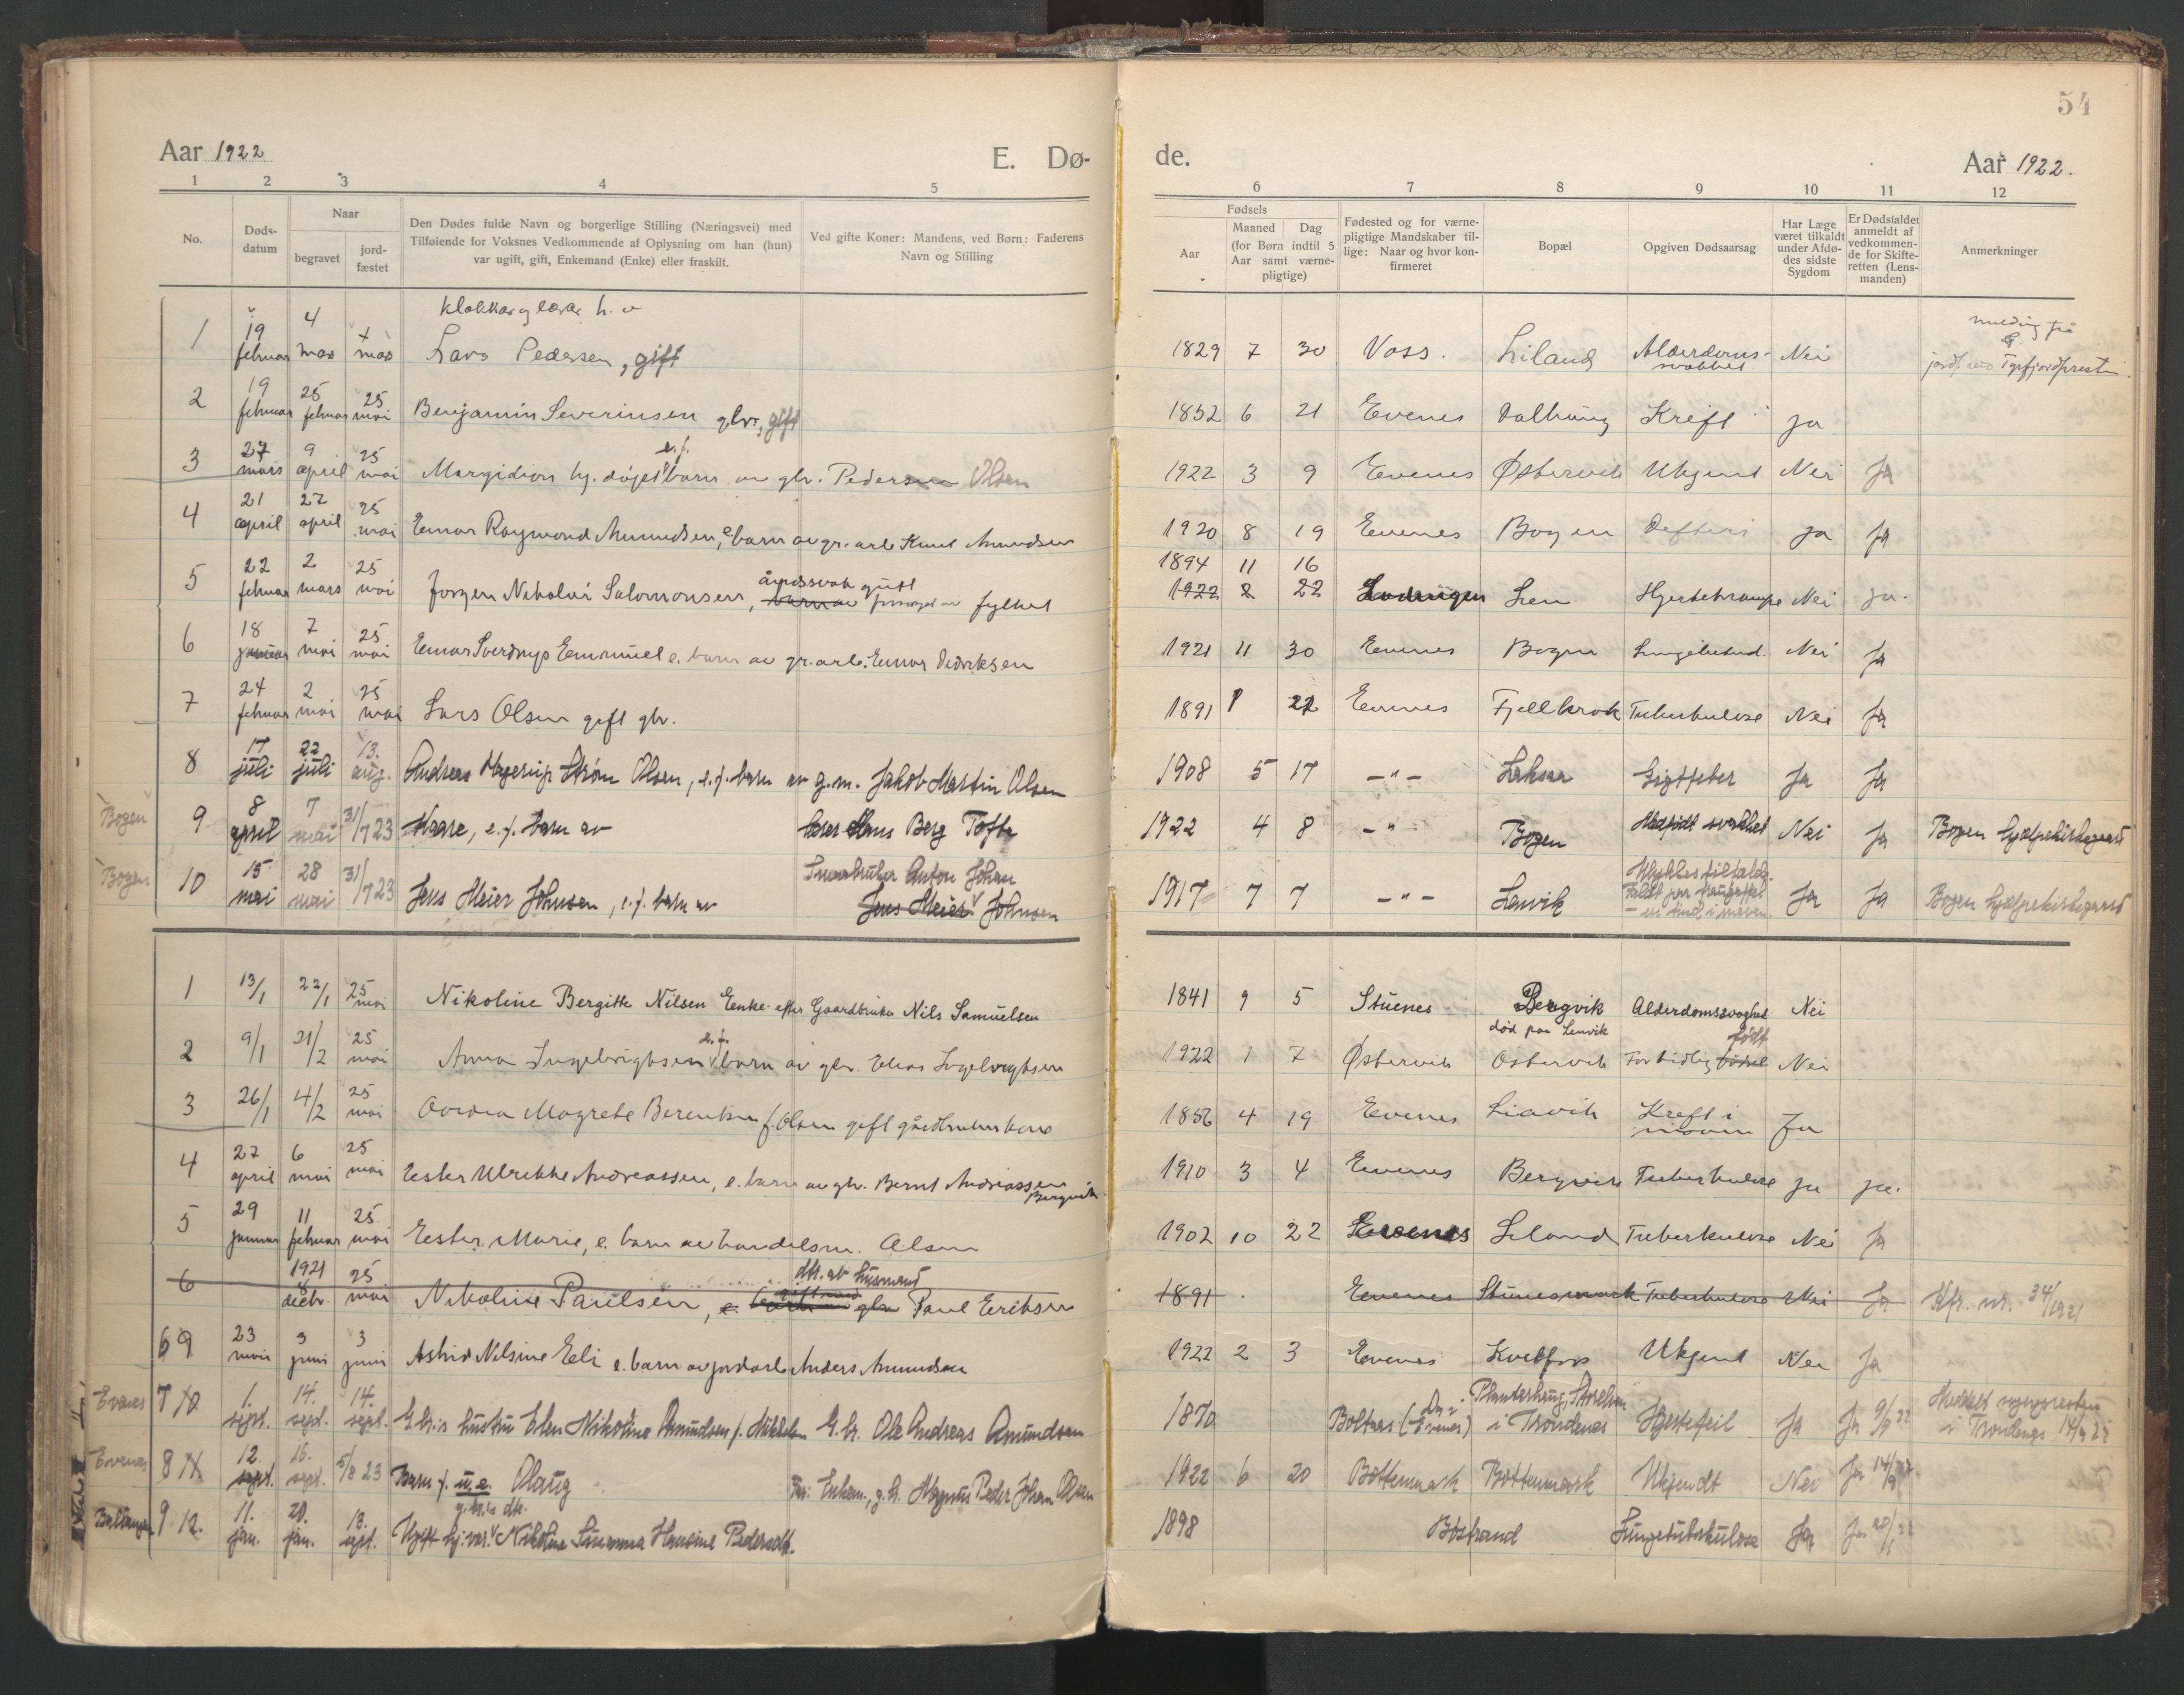 54
Aar 1922
E. Dø-
de.
Aar 1922.
1 2 3 4 5
6 7 8 9 10 11 12
No.
Døds-
datum
Naar
begravet
jord-
fæstet
Den Dødes fulde Navn og borgerlige Stilling (Næringsvei) med
Tilføiende for Voksnes Vedkommende af Oplysning om han (hun)
var ugift, gift, Enkemand (Enke) eller fraskilt.
Ved gifte Koner: Mandens, ved Børn: Faderens
Navn og Stilling
Fødsels
Aar
Maaned Dag
(for Børn indtil 5
Aar samt værne-
pligtige)
Fødested og for værne-
pligtige Mandskaber til-
lige: Naar og hvor kon-
firmeret
Bopæl
Opgiven Dødsaarsag
Har Læge
været tilkaldt
under Afdø-
des sidste
Sygdom
Er Dødsfaldet
anmeldt af
vedkommen-
de for Skifte-
retten (Lens-
manden)
Anmerkninger
1 19 februar 4 mars mars Lars Pedersen, gift 1829 7 30 Voss. Liland Alderdoms- Nei
2 19 februar 25 februar 25 mai Benjamin Severinsen gbr., gift 1852 6 21 Evenes Kreft ja
3 27 mars 9 april 25 mai hj. døpt e.f. barn av gbr. Pedersen Olsen 1922 3 9 Evenes Østervik Ukjent Nei Ja
4 21 april 27 april 25 mai Einar Raymond Amundsen, e. barn av gr. arb. Knut Amundsen 1920 8 19 Evenes Bogen Defteri Ja Ja
1894 11 16
5 22 februar 2 mars 25 mai Jørgen Nikolai Salomonsen, åndssvak gutt barn av fylket 1922 2 22 Lødingen Lien Hjertekrampe Nei ja.
6 18 januar 7 mai 25 mai Einar Sverdrup Emanuel e. barn av gr. arb. Einar Didriksen 1921 11 30 Evenes Bogen Lungebetend. Nei Ja
7 24 februar 2 mai 25 mai Lars Olsen gift gbr. 1891 1 22 Evenes Fjellkrok Tuberkulose Nei Ja
8 17 juli 22 juli 13. aug. Andreas Hagerup Strøm Olsen, e.f. barn av g.m. Jakob Martin Olsen 1908 5 17 -"- Laksaa Gigtfeber Ja Ja
Bogen 9 8 april 7 mai 31/7 23 Kaare, e.f. barn av Hans Berg Tofte 1922 4 8 -"- Bogen Medfødt svakhet Nei Ja Bogen hjælpekirkegaard
Bogen 10 15 mai 28 mai 31/7 23 Jens Meier Johnsen, e.f. barn av Anton Johan Jens Meier Johnsen 1917 7 7 -"- Lenvik Ja Ja Bogen hjælpekirkegaard
1 13/1 22/1 25 mai Nikoline Bergitte Nilsen Enke efter Gaardbruker Nils Samuelsen 1841 9 5 Stuenes Bergvik død paa Lenvik Alderdomssvaghet Nei
2 9/1 21/2 25 mai Anna Ingebrigtsen e.f. barn av gbr. Elias Ingebrigtsen 1922 1 7 Østervik Østervik For tidlig født Nei
3 26/1 4/2 25 mai Magrete Berentsen f. Olsen gift gårdbrukerkone 1856 4 19 Evenes Liavik Kreft i maven Ja
4 27 april 6 mai 25 mai Ester Ulrikke Andreassen, e. barn av gbr. Bernt Andreassen Bergvik 1910 3 4 Evenes Bergvik Tuberkulose ja ja.
5 29 januar 11 februar 25 mai Ester Marie, e. barn av handelsm. Olsen 1902 10 22 Evenes Liland Tuberkulose Nei Ja
6 1921 8 decbr. 25 mai Nikoline Paulsen, e. dtr. av husmand gbr Paul Eriksen 1891 Evenes Stunesmark Tuberkulose Nei Ja Kfr. nr. 34/1921
6 9 23 mai 3 juni 3 juni Astrid Nilsine Eeli e. barn av jordarb Anders Amundsen 1922 2 3 Evenes Kvitfors Ukjent Nei Ja
Evenes 7 10 1. sept. 14. sept. 14. sept. G.br.s hustru Elen Nikoline Amundsen f. Mikkelsen G.br. Ole Andreas Amundsen 1870 Boltaas (Evenes) i Trondenes Hjertefeil Ja Ja 9/9 22 i Trondenes 14/9 22
Evenes 8 11 12. sept. 16. sept. 5/8 23 Barn f. u.e. Olaug Far: Enkem., g.br. Magnus Peder Johan Olsen 1922 6 20 Bøttenmark Bøttenmark Ukjendt Nei Ja 14/9
Ballangen 9 12. 11. jan. 20. jan. 13. sept. Ugift hj.vær. g.br.s dtr. Nikoline Susanna Hansine Pedersdtr. 1898 Bøstrand Lungetuberkulose Ja Ja 20/1 22